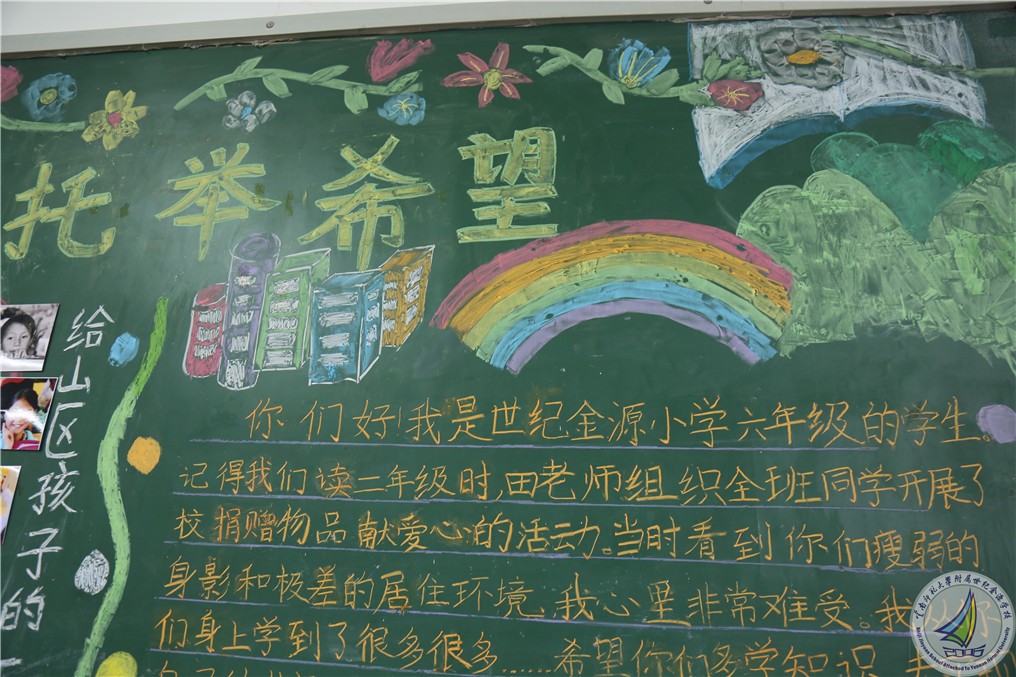 托举希望
给山区孩子的
你们好!我是世纪金源小学六年级的学生。
记得我们读二年级时,由老师组织全班同学开展了
校捐赠物品献爱心的活动。当时看到你们瘦弱的
身影和极差的居住环境,我心里非常难受。我从你
们身上学到了很多很多……希望你们多学知识
云南师范大學附属世纪金源学校
Shiji Jinyuan School Attached To Yunnan Normal University